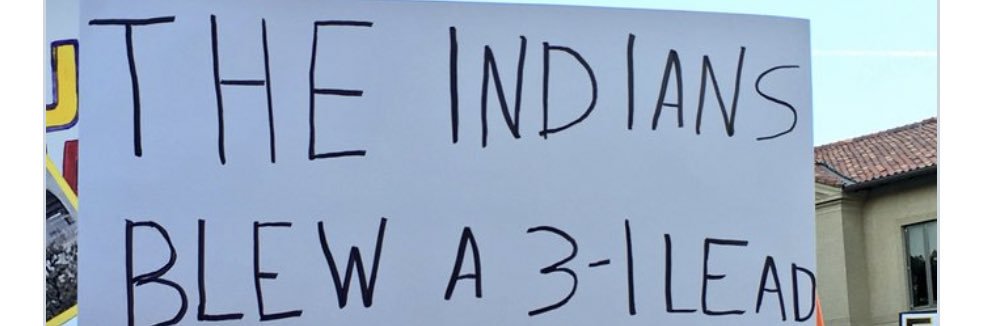 THE INDIANS
BLEW A 3-1 LEAD